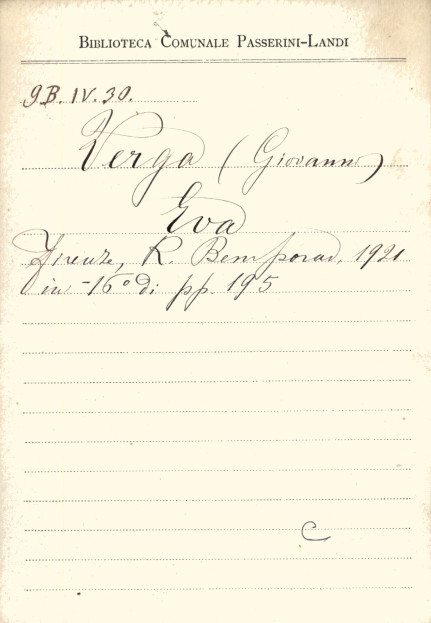 BIBLIOTECA COMUNALE PASSERINI-LANDI
9B.IV.30.
Verga (Giovanni)
Eva
Firenze, R. Bemporad, 1921
in -16° di pp. 195
C